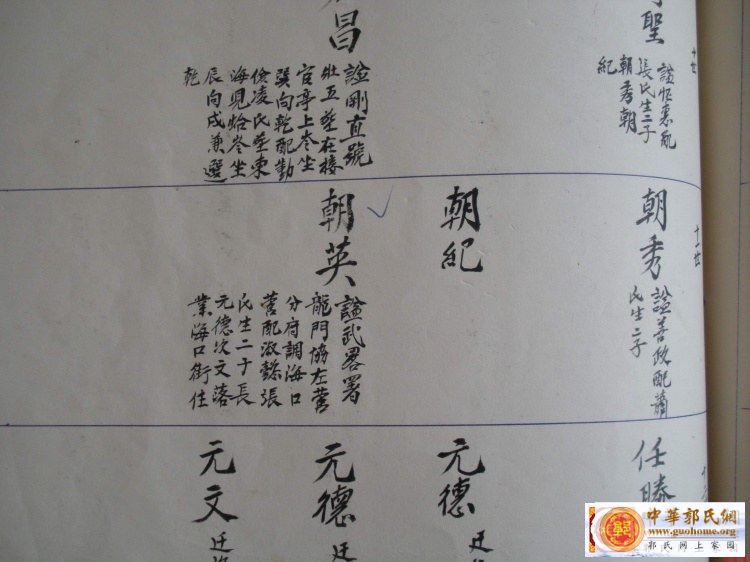 十世
聖
諡恆惠配
張氏生二子
朝秀朝
紀
昌
諡剛直號
壯五葬在樓
官亭上岑坐
巽向乾配勤
儉凌氏葬東
海見蛤岑坐
辰向戌兼巽
乾
十一世
朝秀
諡善政配蕭
氏生二子
朝紀
朝英
諡武畧署
龍門協左營
分府調海口
營配淑懿張
氏生二子長
元德次文落
業海口街住
任
元德
迁
元德
迁
元文
迁
中華郭氏網
www.guohome.org
郭氏网上家园